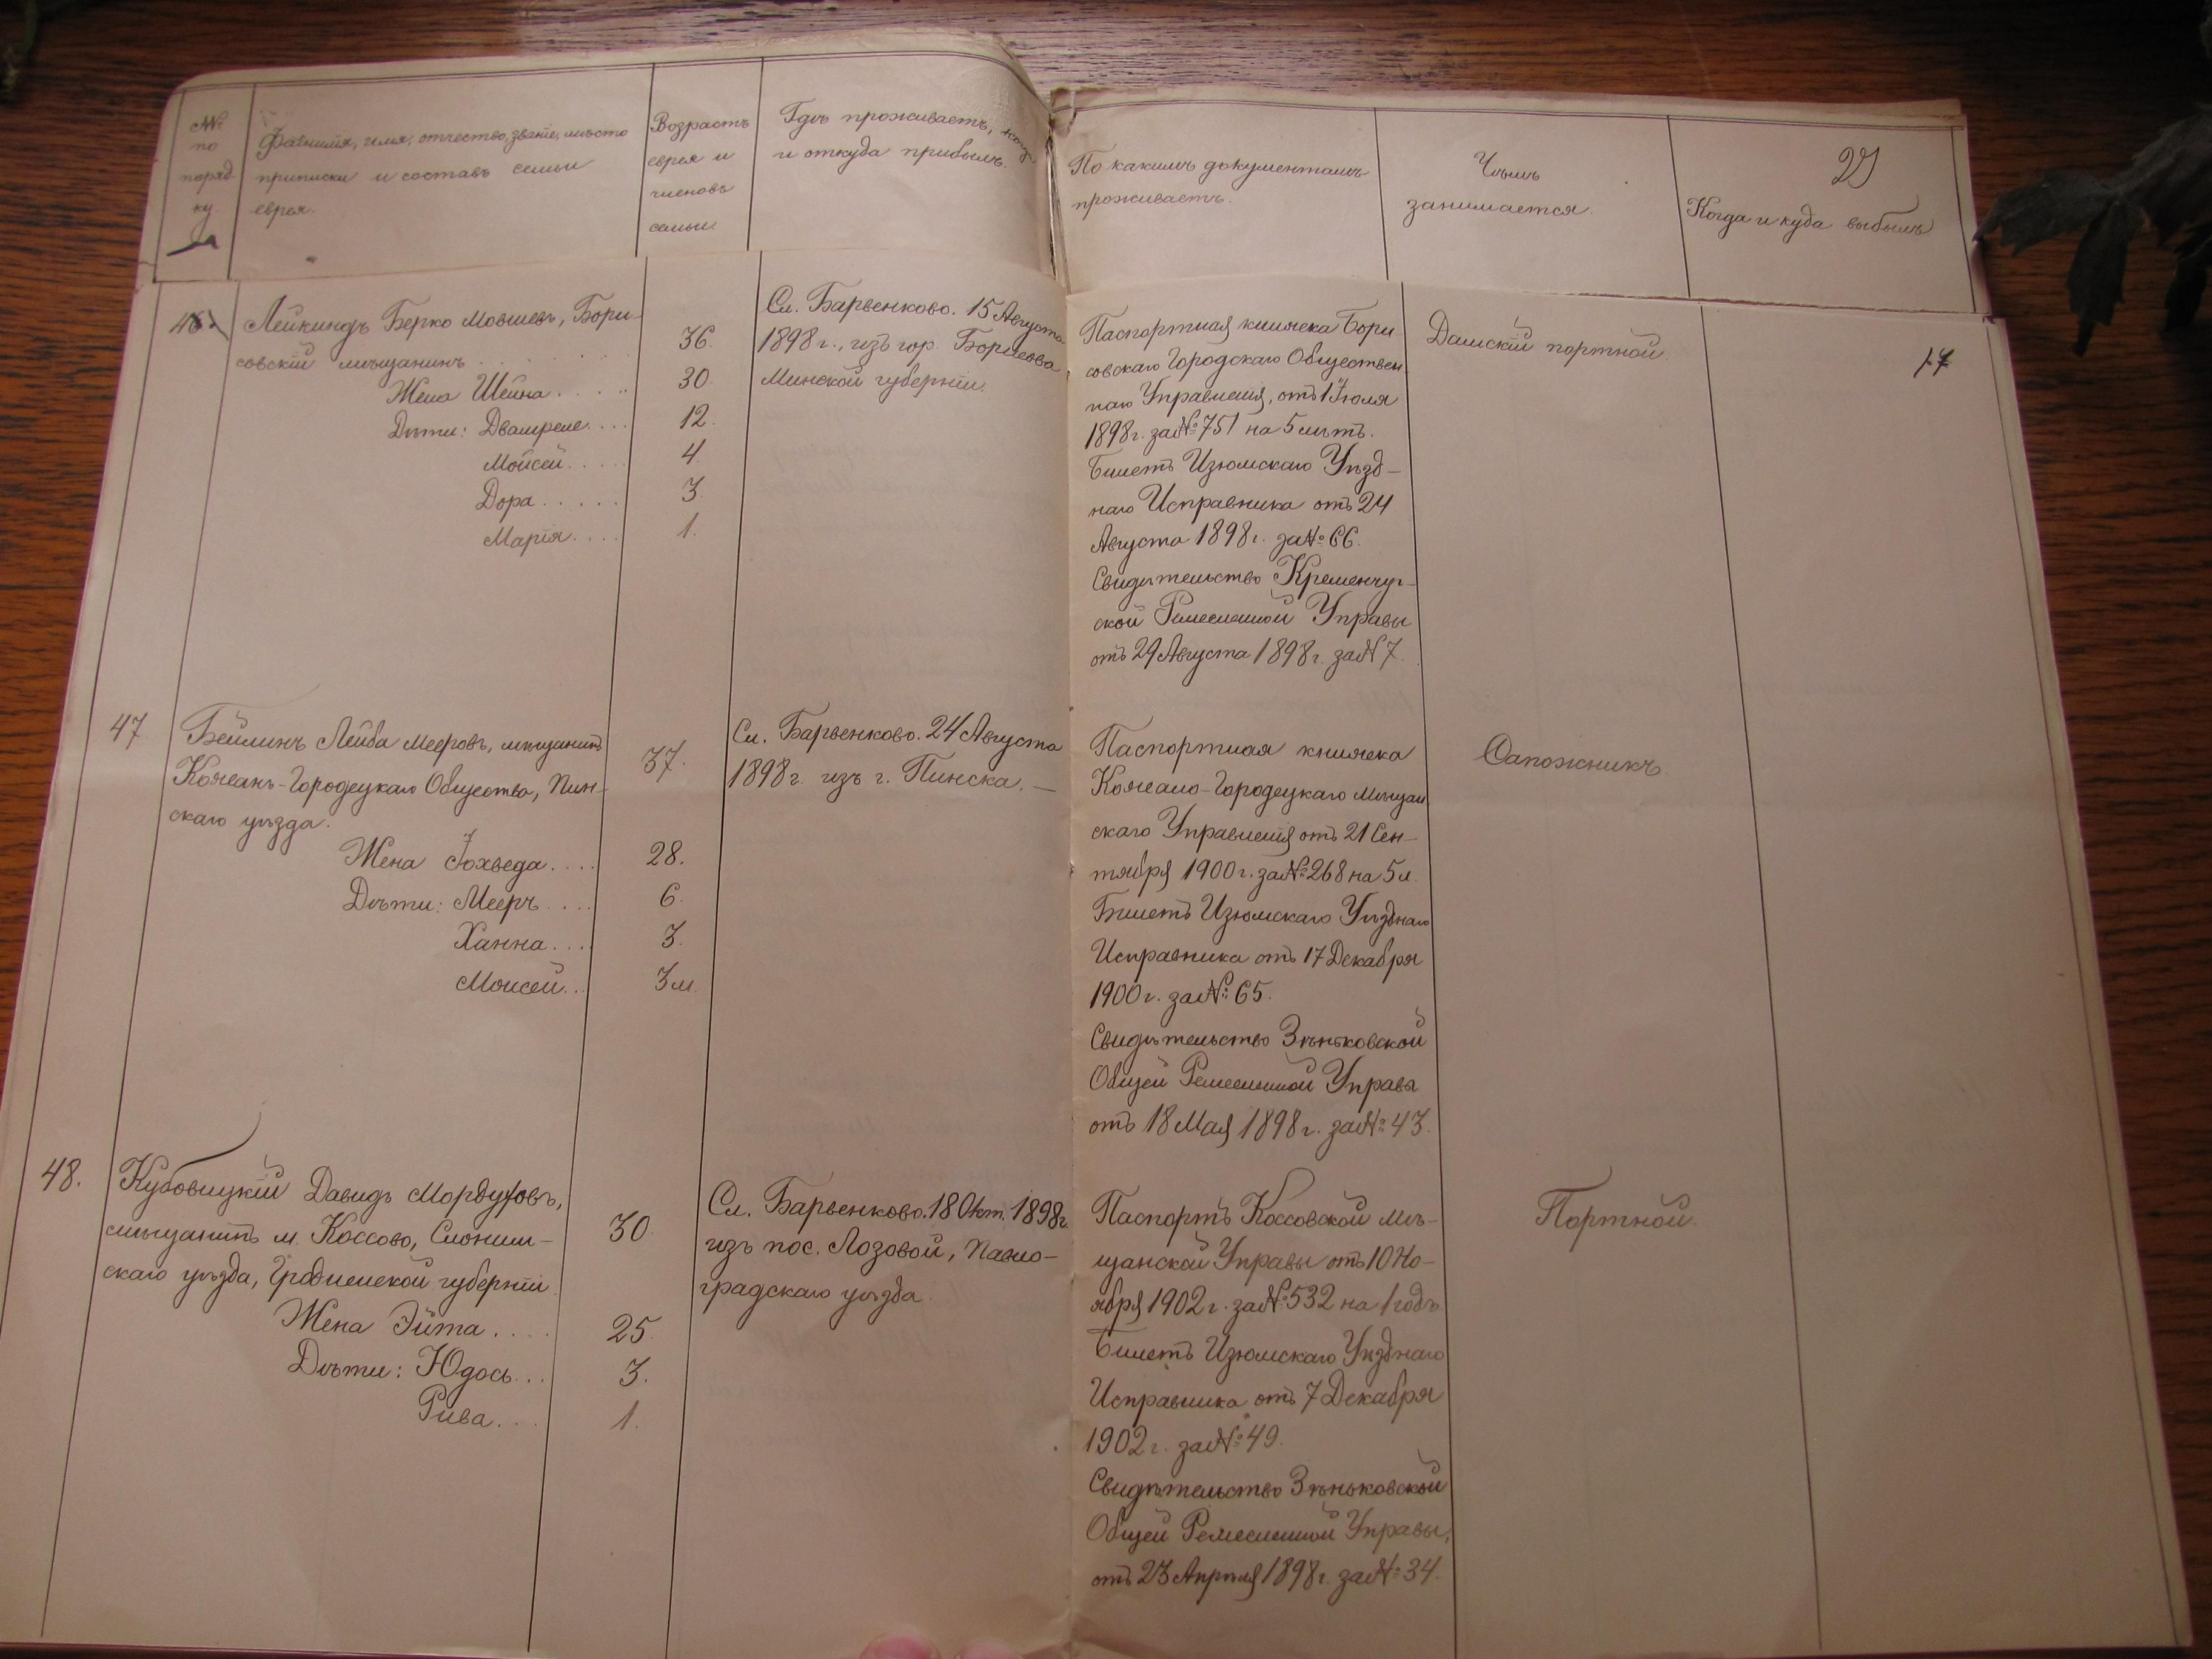 №
по
поряд
ку.
Фамилія, имя, отчество, званіе, мѣсто
приписки и составъ семьи
еврея.
Возрастъ
еврея и
членовъ
семьи.
Гдѣ проживаетъ, когда
и откуда прибылъ.
По какимъ документамъ
проживаетъ.
Чѣмъ
занимается.
Когда и куда выбылъ
46.
Лейкиндъ Берко Мовшевъ, Бори-
совскій мѣщанинъ . . . . . . 36.
Жена Шейна . . . . . 30.
Дѣти: . . . 12.
Мойсей . . . . . 4.
Дора . . . . . 3.
Марія . . . . 1.
Сл. Барвенково. 15 Августа
1898 г., изъ гор. Борисова
Минской губерніи.
Паспортная книжка Бори
совскаго Городскаго Обществен
наго Управленія, отъ 1 Іюля
1898 г. за № 751 на 5 лѣтъ.
Билетъ Изюмскаго Уѣзд-
наго Исправника отъ 24
Августа 1898 г. за № 66.
Свидѣтельство Кременчуг-
ской Ремесленной Управы
отъ 29 Августа 1898 г. за № 7.
Дамскій портной.
17
47
Бейлинъ Лейба Мееровъ, мѣщанинъ
Кожанъ-Городецкаго Общества, Пин-
скаго уѣзда. 37.
Жена Іохведа . . . . 28.
Дѣти: Мееръ . . . . 6.
Ханна . . . . 3.
Моисей . . 3 м.
Сл. Барвенково. 24 Августа
1898 г. изъ г. Пинска. —
Паспортная книжка
Кожано-Городецкаго Мѣщан
скаго Управленія отъ 21 Сен-
тября 1900 г. за № 268 на 5 л.
Билетъ Изюмскаго Уѣзднаго
Исправника отъ 17 Декабря
1900 г. за № 65.
Свидѣтельство Зѣньковской
Общей Ремесленной Управы
отъ 18 Мая 1898 г. за № 43.
Сапожникъ.
48.
Кубовицкій Давидъ Мордуховъ,
мѣщанинъ м. Коссово, Слоним-
скаго уѣзда, Гродненской губерніи 30.
Жена Эйта . . . . 25.
Дѣти: Юдось . . . 3.
Рива . . . 1.
Сл. Барвенково. 18 Окт. 1898 г.
изъ пос. Лозовой, Павло-
градскаго уѣзда.
Паспортъ Коссовской мѣ-
щанской Управы отъ 10 Но-
ября 1902 г. за № 532 на 1 годъ
Билетъ Изюмскаго Уѣзднаго
Исправника отъ 7 Декабря
1902 г. за № 49.
Свидѣтельство Зѣньковской
Общей Ремесленной Управы,
отъ 23 Апрѣля 1898 г. за № 34.
Портной.